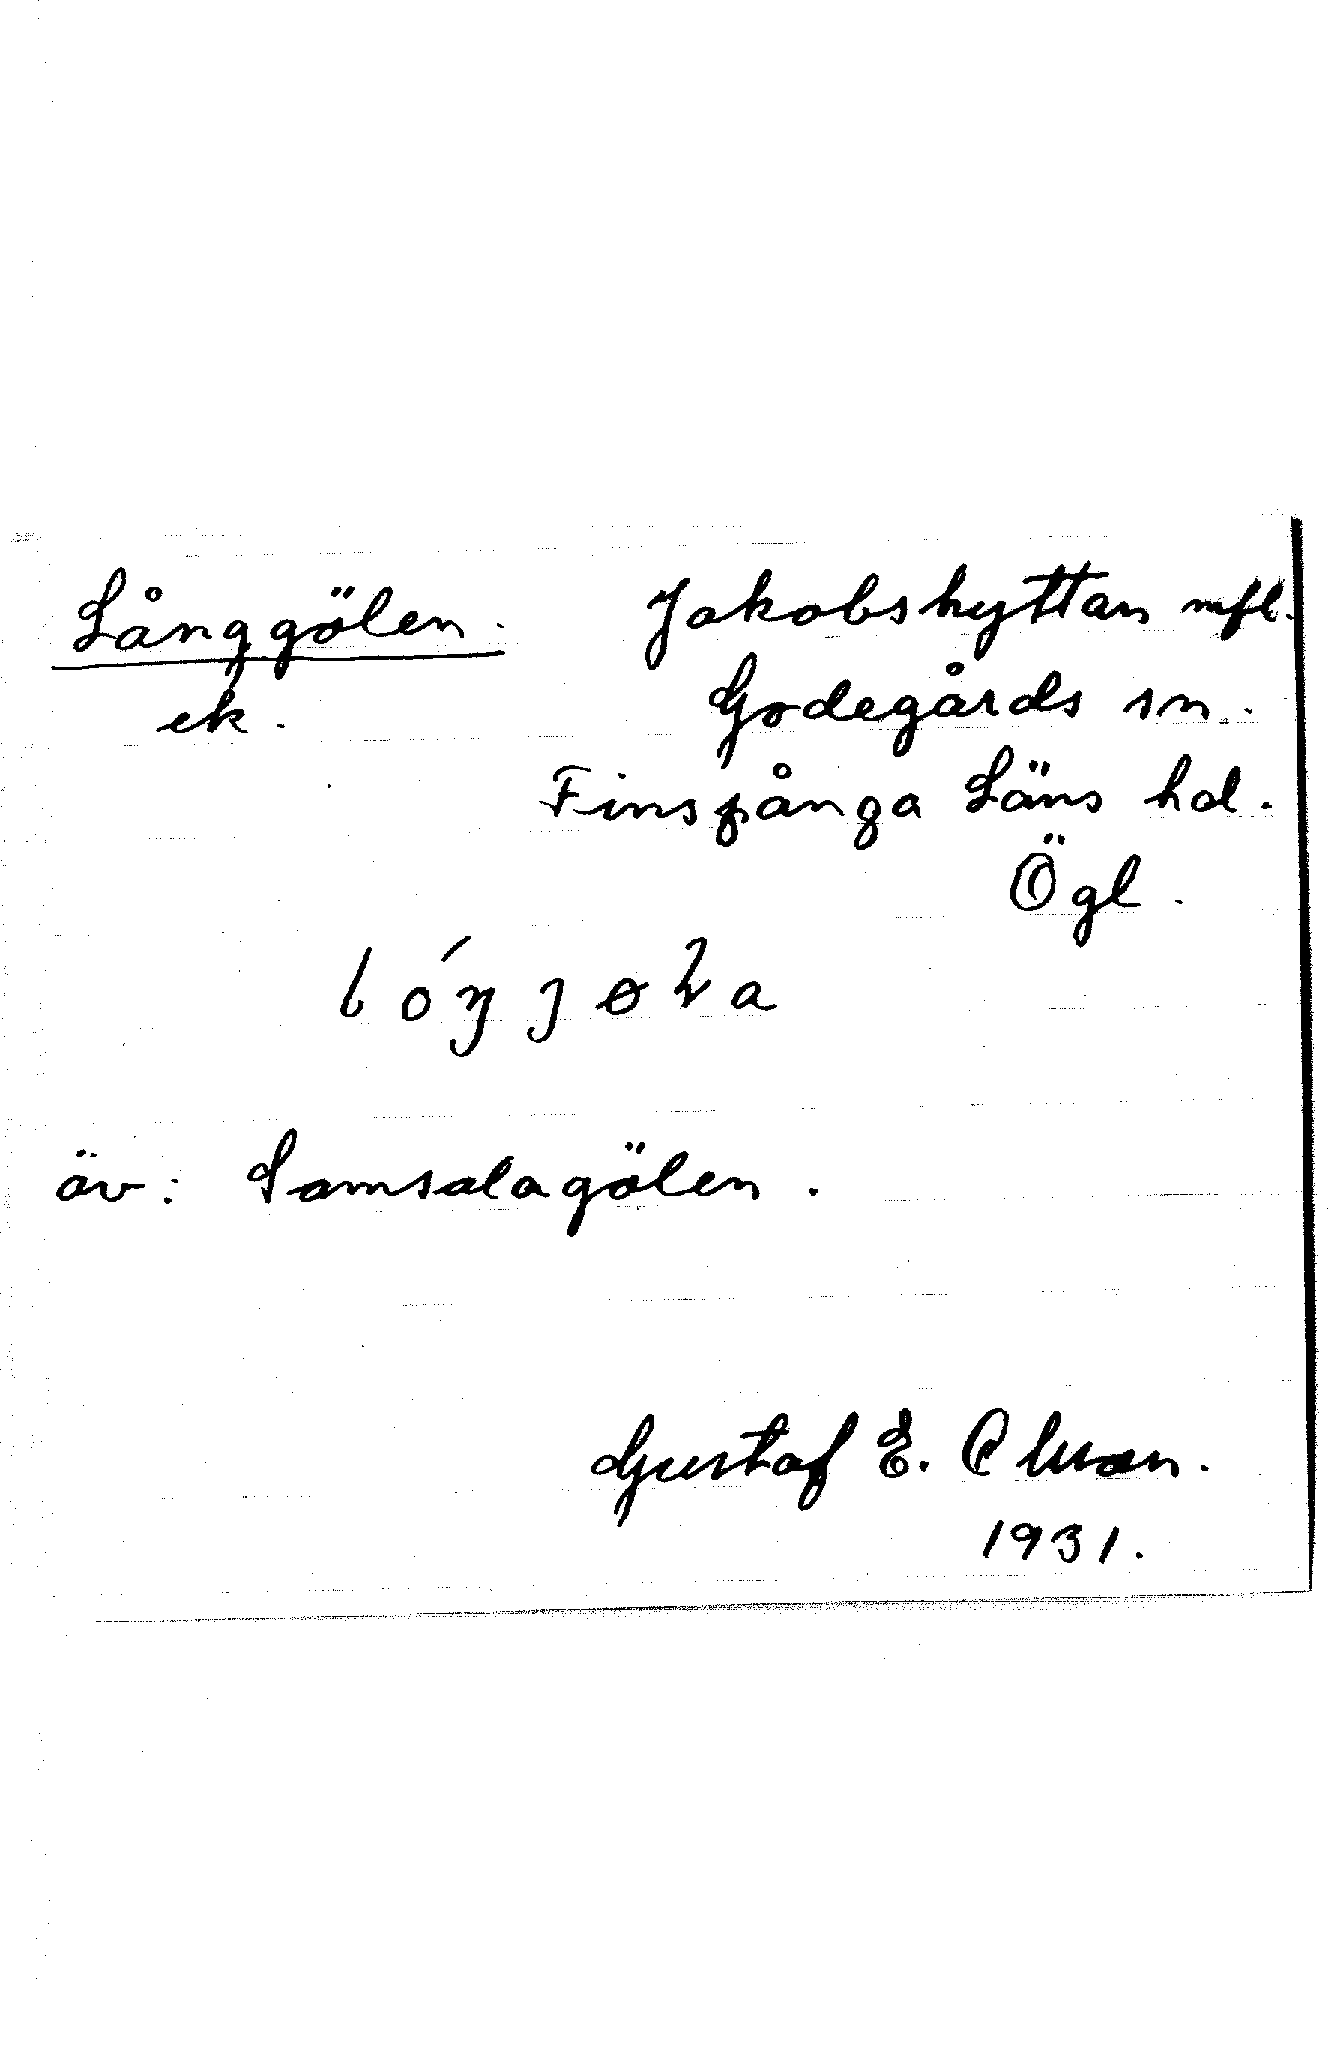 Långgölen. Jakobshyttan mfl.
ek. Godegårds sn.
Finspånga Läns hd.
Ögl.
äv: Samsalagölen.
Gustaf E.
1931.